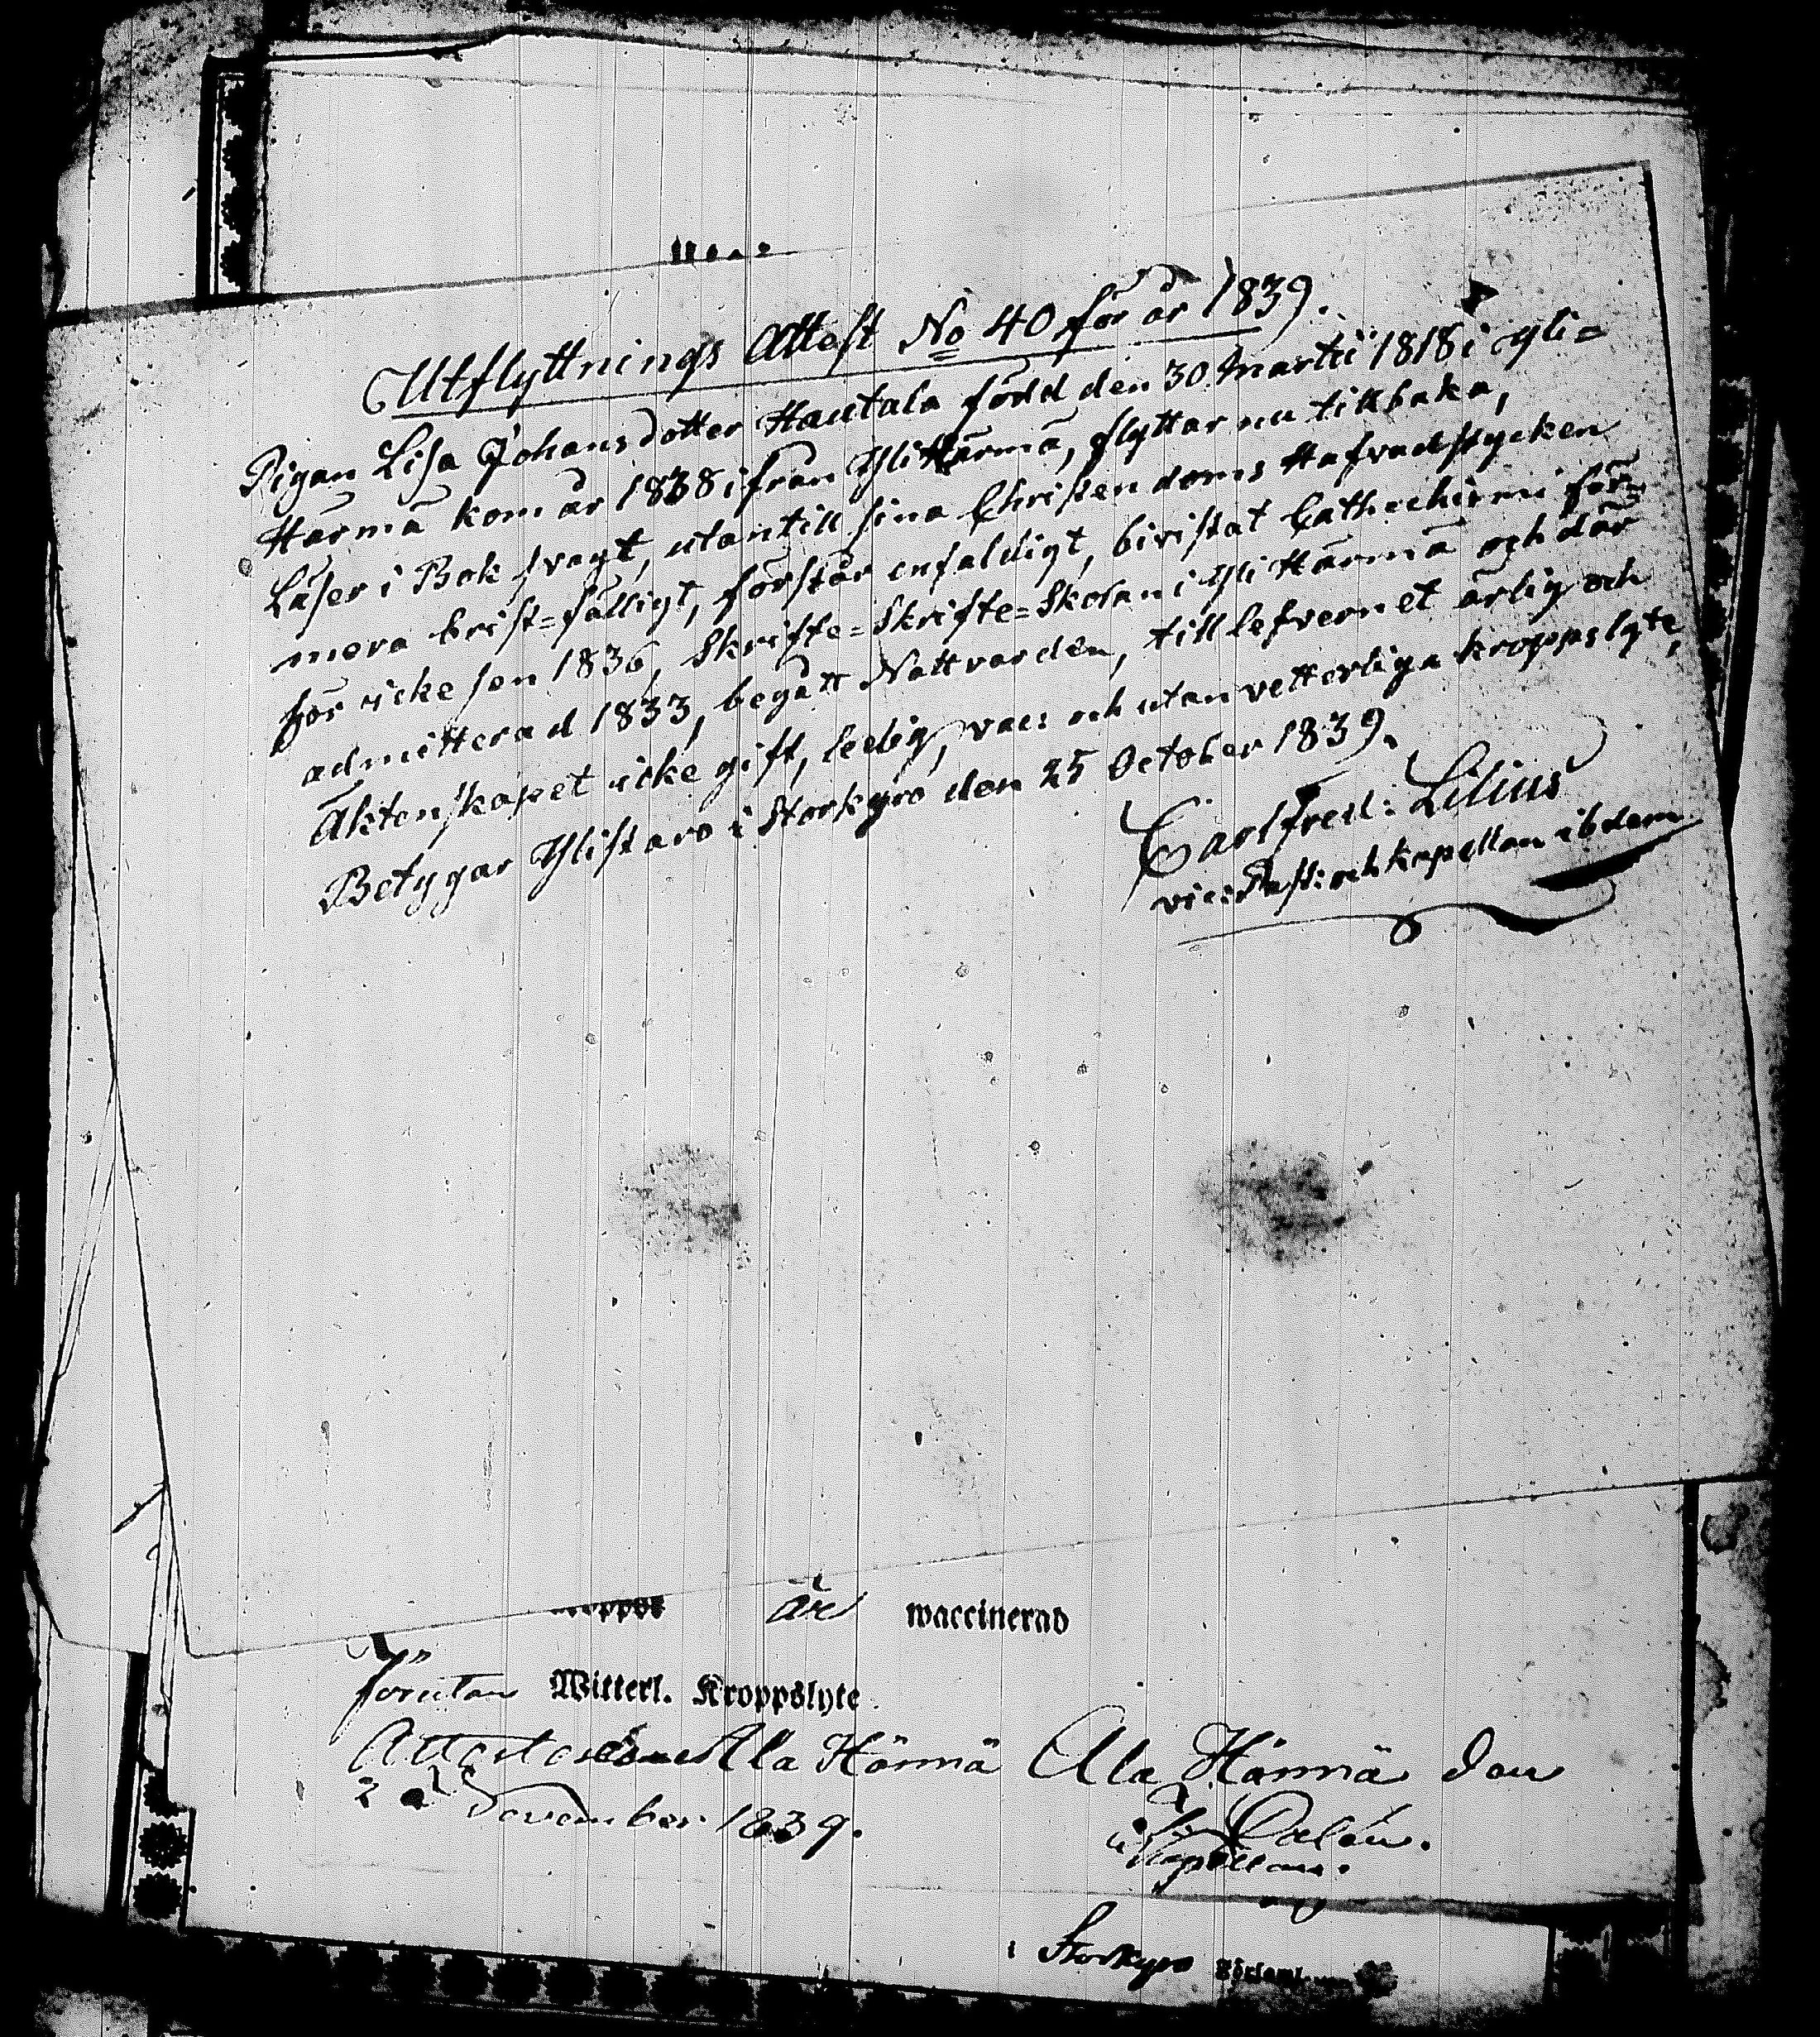 Utflyttnings Attest No 40 för år 1839.
Pigan Lisa Johansdotter Hautala född den 30 Martii 1818 i Yli=
Härmä kom år 1838 ifrån Yli Härmä, flyttar nu tillbaka,
Läser i Bok svagt, utantill sina Christendoms Hafvudstycken
mera brist=fälligt, förstår enfaldigt, bivistat Cathechismi för=
hör icke sen 1836, Skrifte=Skrifte=Skolan i Yli Härmä och där
admitterad 1833, begått Nattvarden, till lefvernet ärlig och
Äktenskapet icke gift, ledig, vac: och utan vetterliga kroppslyte,
Betygar Ylistaro i Storkyro den 25 October 1839.
Carl Fred: Lilius
vic: Past: och kapellan ibdem
är waccinerad
förutan Witterl. Kroppslyte.
Ala Härmä Ala Härmä den
2 November 1839.
Dalén.
Kapellan.
i Storkyro Församl.